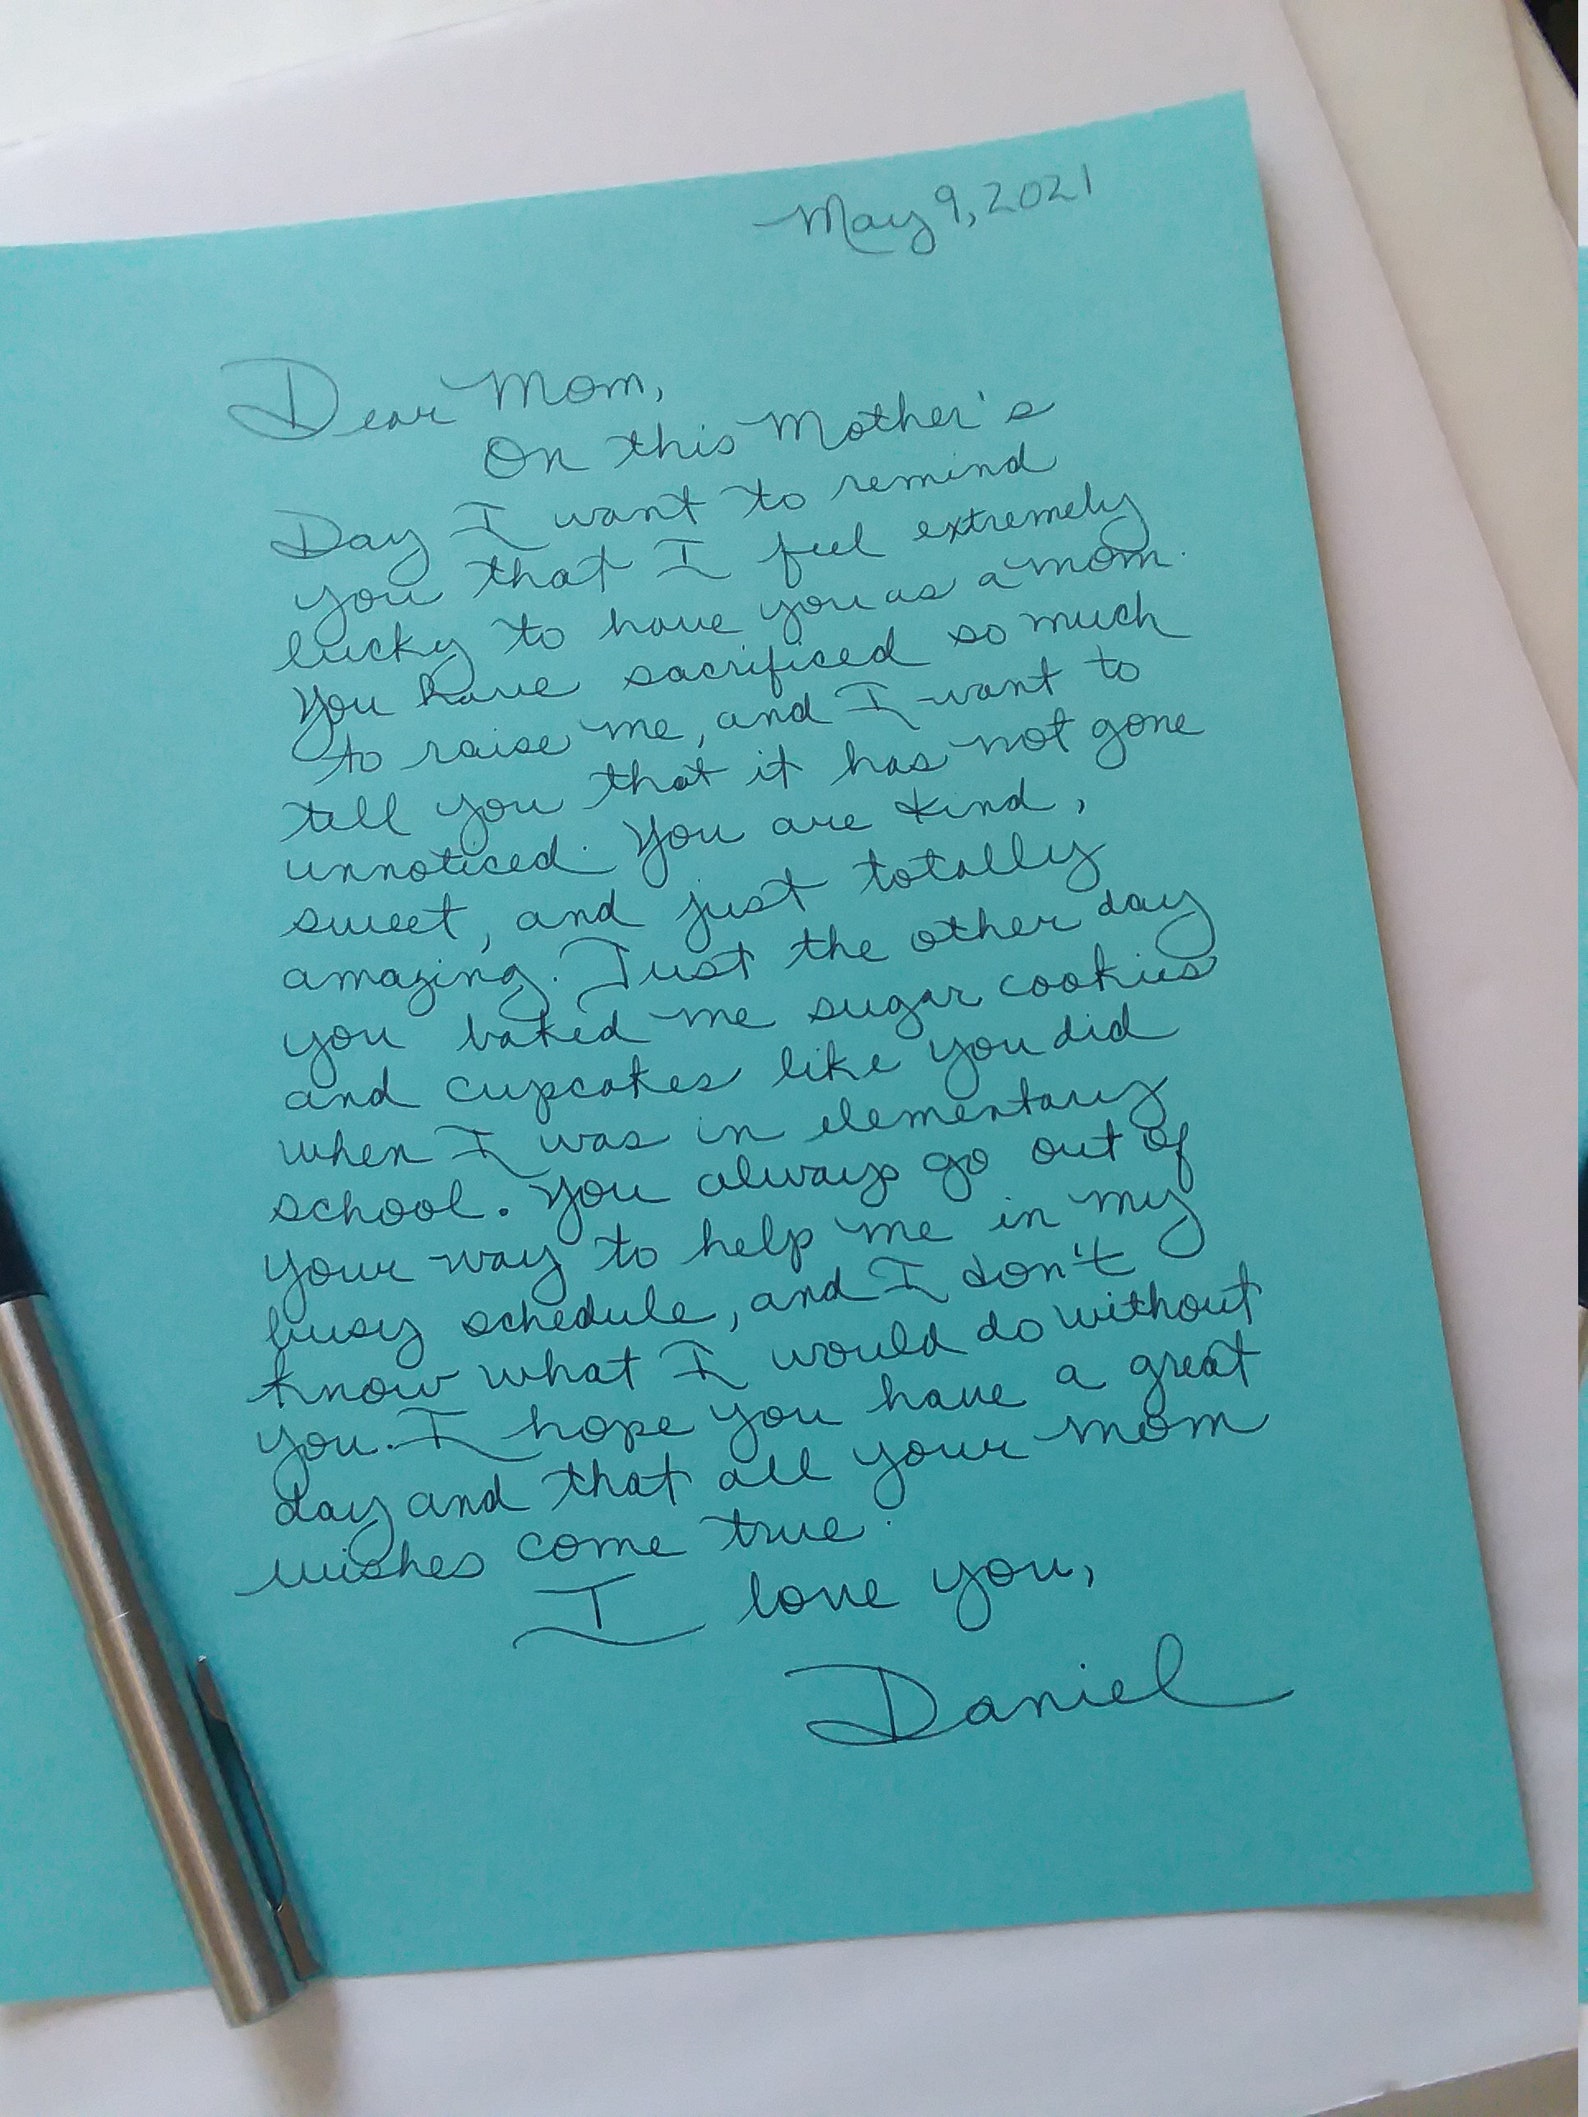 May 9, 2021
Dear Mom,
On this Mother's
Day I want to remind
you that I feel extremely
lucky to have you as a mom.
You have sacrificed so much
to raise me, and I want to
tell you that it has not gone
unnoticed. You are kind,
sweet, and just totally
amazing. Just the other day
you baked me sugar cookies
and cupcakes like you did
when I was in elementary
school. You always go out of
your way to help me in my
busy schedule, and I don't
know what I would do without
you. I hope you have a great
day and that all your mom
wishes come true.
I love you,
Daniel